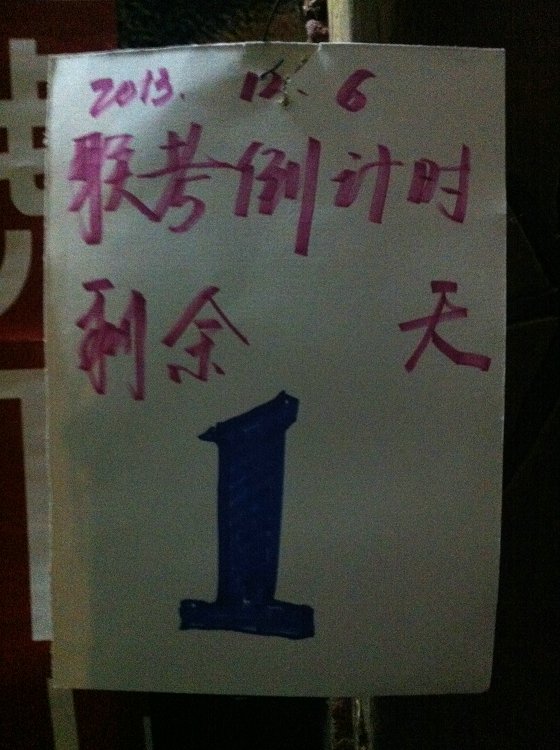 2013. 12. 6
联考倒计时
剩余 天
1